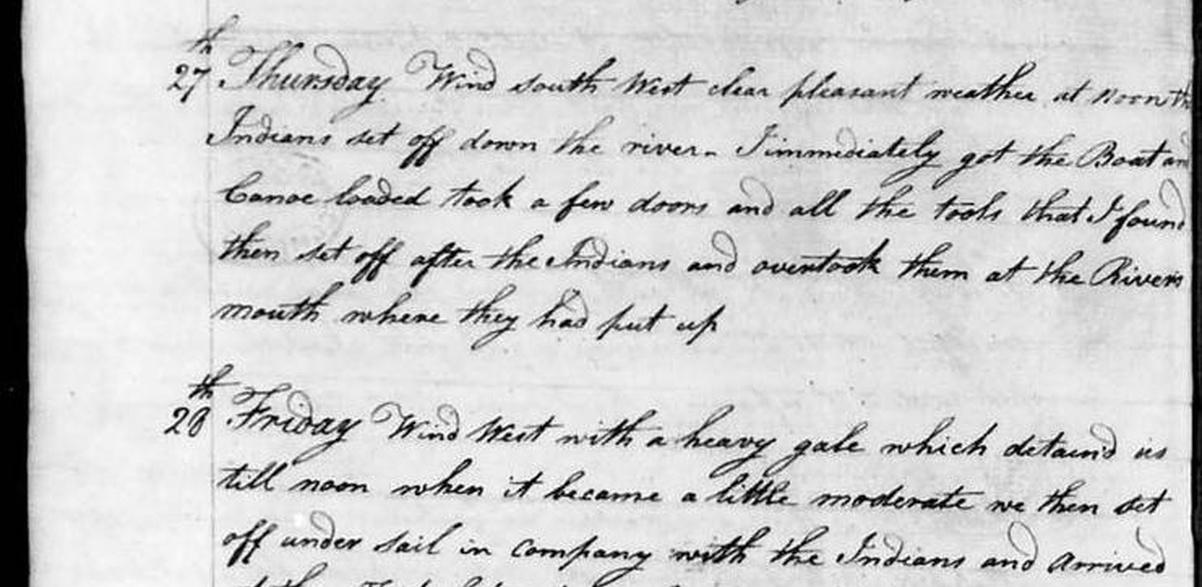 27th Thursday Wind south West clear pleasant weather at noon the
Indians set off down the river. I immediately got the Boat and
Canoe loaded took a few doors and all the tools that I found
then set off after the Indians and overtook them at the Rivers
mouth where they had put up
28th Friday Wind West with a heavy gale which detaind us
till noon when it became a little moderate we then set
off under sail in company with the Indians and arrived